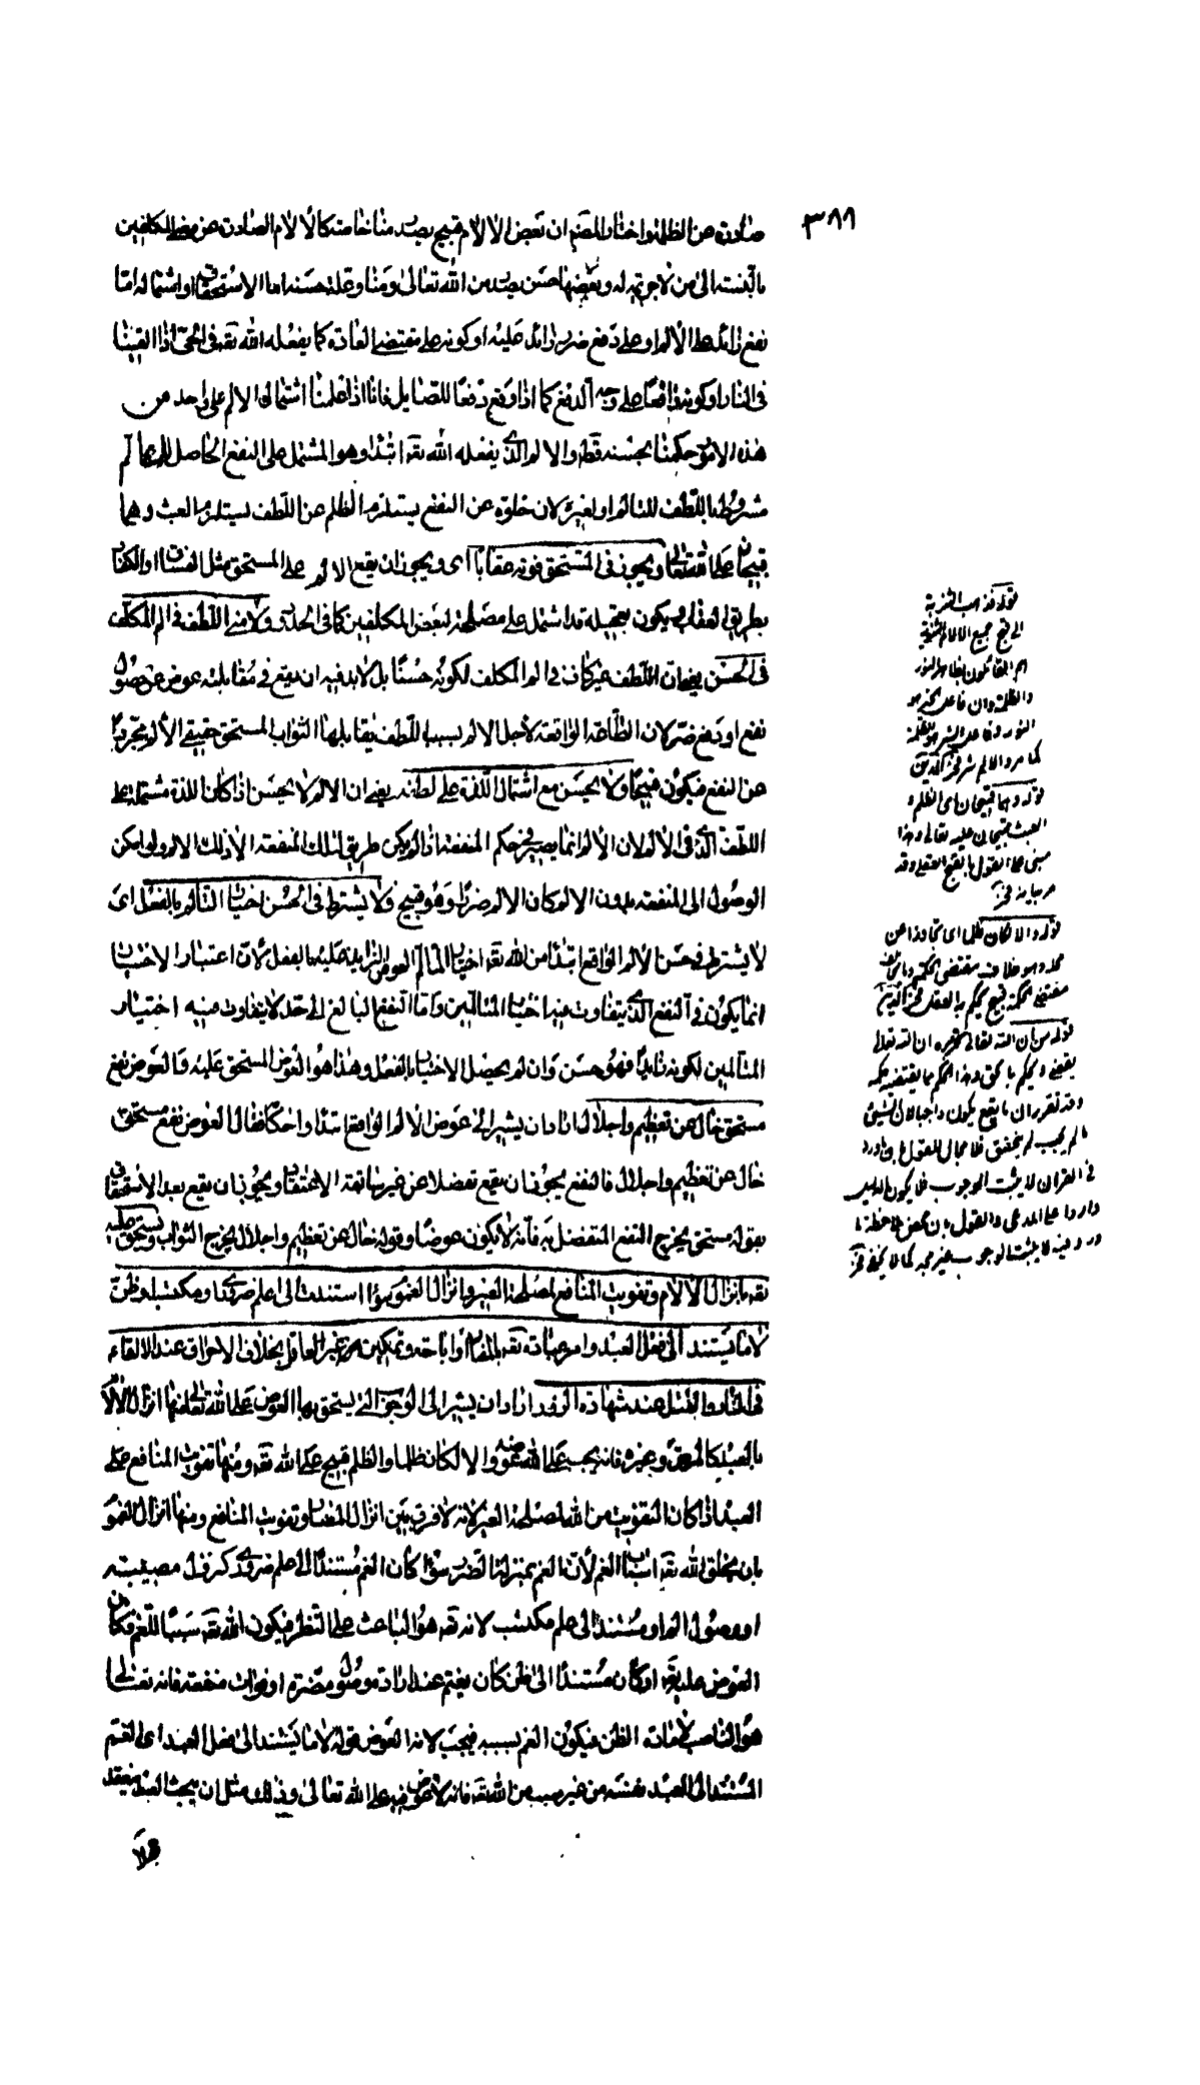 ٣٨٨
صادرة عن الظلمة واختار المصنف ان بعض الالام قبيح يصدر منا خاصة كالالام الصادرة عن بعض المكلفين
بالنسبة الى من لا جريمة له وبعضها حسن يصدر من الله تعالى ومنا وعلة حسنه اما الاستحقاق او اشتماله اما
نفع زائد على الالم او على دفع ضرر زائد عليه او كونه على مقتضى العادة كما يفعله الله تقه في الحى اذا القيناه
في النار او كونه واقعا على وجه الدفع كما اذا وقع دفعا للصايل فانا اذا علمنا اشتمال الالم على واحد من
هذه الامور حكمنا بحسنه قطعا والالم الذى يفعله الله تقه ابتداء وهو المشتمل على النفع الحاصل للمتالم
مشروط باللطف للمتالم او لغيره لان خلوه عن النفع يستلزم الظلم عن اللطف يستلزم العبث وهما
قبيحان على الله تعالى ويجوز في المستحق كونه عقابا اى ويجوز ان يقع الالم على المستحق مثل الفساق او الكفار
بطريق العقاب ويكون تعجيله قد اشتمل على مصلحة لبعض المكلفين كما في الحدود ولا يكفى اللطف في الم المكلف
في الحسن يعنى ان اللطف غير كاف في الم المكلف لكونه حسنا بل لابد فيه ان يقع في مقابلته عوض من حصول
نفع او دفع ضرر لان الطاعة الواقعة لاجل الالم بسبب اللطف يقابلها الثواب المستحق فيبقى الالم مجردا
عن النفع فيكون قبيحا ولا يحسن مع اشتمال اللذة على لطفه يعنى ان الالم لا يحسن اذا كان اللذة مشتملة على
اللطف الذى في الالم لان الالم انما يصير في حكم المنفعة اذا لم يكن طريق لتلك المنفعة الا ذلك الالم ولو امكن
الوصول الى المنفعة بدون الالم كان الالم ضررا وهو قبيح ولا يشترط في الحسن اختيار المتالم بالفعل اى
لا يشترط في حسن الالم الواقع ابتداء من الله تقه اختيار المتالم العوض الزايد عليه بالفعل لان اعتبار الاختيار
انما يكون في النفع الذى يتفاوت فيه اختيار المتالمين واما النفع البالغ الى حد لا يتفاوت فيه اختيار
المتالمين لكونه زايدا فهو حسن وان لم يحصل الاختيار بالفعل وهذا هو العوض المستحق عليه فالعوض نفع
مستحق خال عن تعظيم واجلال اراد ان يشير الى عوض الالم الواقع ابتداء واحكامه فقال العوض نفع مستحق
خال عن تعظيم واجلال فالنفع يجوز ان يقع تفضلا عن غير سابقة الاستحقاق ويجوز ان يقع بعد الاستحقاق
بقوله مستحق يخرج النفع المتفضل به فانه لا يكون عوضا وقوله خال عن تعظيم واجلال يخرج الثواب ويستحق عليه
تقه بانزال الالام وتفويت المنافع لمصلحة الغير وانزال الغموم سواء استندت الى علم ضرورى او مكتسب او ظن
لا ما يستند الى فعل العبد وامر عباده تقه بالمضار او اباحته وتمكين غير العاقل بخلاف الاحراق عند الالقاء
في النار والقتل عند شهادة الزور اراد ان يشير الى الوجوه التى يستحق بها العوض على الله تعالى منها انزال الالام
بالعبد كالمرض وغيره فانه يجب على الله عوضه والا لكان ظلما والظلم قبيح على الله تقه ومنها تفويت المنافع على
العبد اذا كان التفويت من الله لمصلحة الغير لانه لا فرق بين انزال المضار وتفويت المنافع ومنها انزال الغموم
بان يخلق الله تقه اسباب الغم لان الغم بمنزلة الضرر سواء كان الغم مستندا الى علم ضرورى كنزول مصيبة
او وصول الم او مستندا الى علم مكتسب لانه تقه هو الباعث على النظر فيكون الله تقه سببا للغم فكان
العوض عليه تقه او كان مستندا الى ظن كان يغتم عند امارة وصول مضرة او فوات منفعة فانه تعالى
هو الناصب لامارة الظن فيكون الغم بسببه فيجب لانه العوض قوله لا ما يستند الى فعل العبد اى الغم
المستند الى العبد نفسه من غير سبب من الله تقه فانه لا عوض فيه على الله تعالى وذلك مثل ان يبحث العبد فيعتقد
جهلا
قوله فذهب الثنوية
الى قبح جميع الالام الثنوية
هم القائلون بالنور
والظلمة وان فاعل الخير هو
النور وفاعل الشر هو الظلمة
كما مر والالم شر
قوله وهما قبيحان اى الظلم و
العبث قبيحان عليه تعالى وهذا
مبنى على القول بالقبح العقلى وقد
مر بيانه
قوله والا لكان ظلما اى تجاوزا عن
حده وهو خلاف مقتضى الحكمة وما يخالف
مقتضى الحكمة قبيح يحكم به العقل
قوله من ان الله تعالى
يقضى ويحكم بالحق وهذا الحكم مما يقتضيه حكمه
وقد تقرر ان ما يقع يكون واجبا لان الشئ
ما لم يجب لم يتحقق فلا مجال للقول بان ما ورد
في القران لا يثبت الوجوب فلا يكون الدليل
واردا على المدعى والقول بان محض ملاحظة ما
ورد فيه لا يثبت الوجوب غير مجد كما لا يخفى